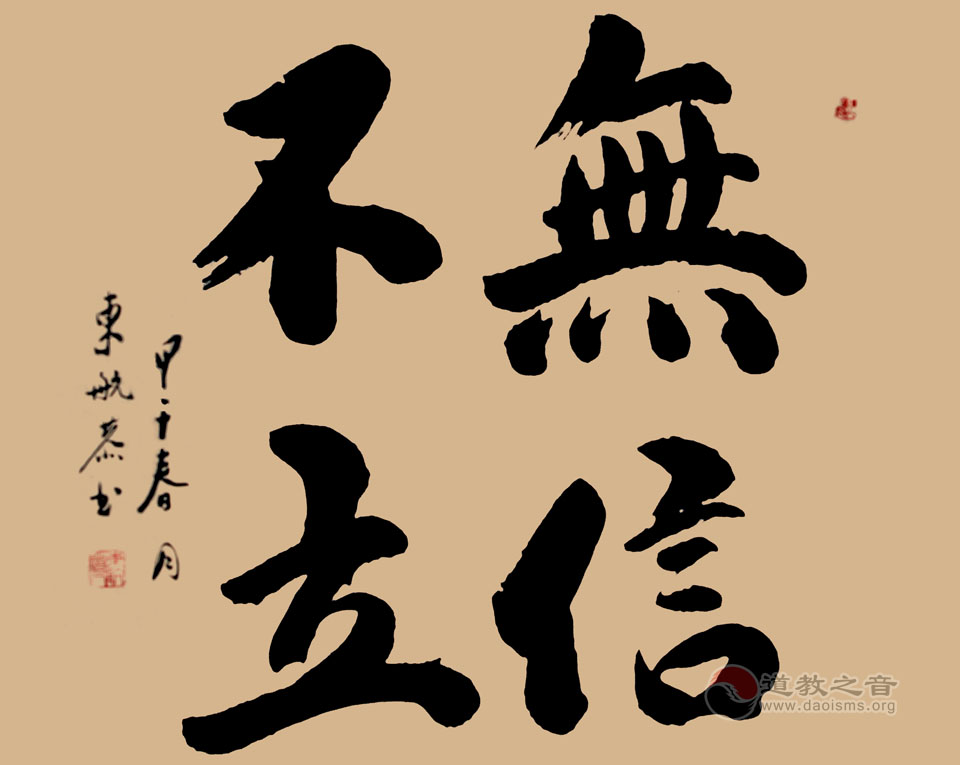 無信
不立
甲午春月
東航恭书
道教之音
www.daoisms.org